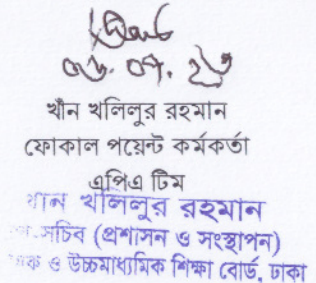 ০৬. ০৭. ২৩
খাঁন খলিলুর রহমান
ফোকাল পয়েন্ট কর্মকর্তা
এপিএ টিম
খান খলিলুর রহমান
সচিব (প্রশাসন ও সংস্থাপন)
ও উচ্চমাধ্যমিক শিক্ষা বোর্ড, ঢাকা